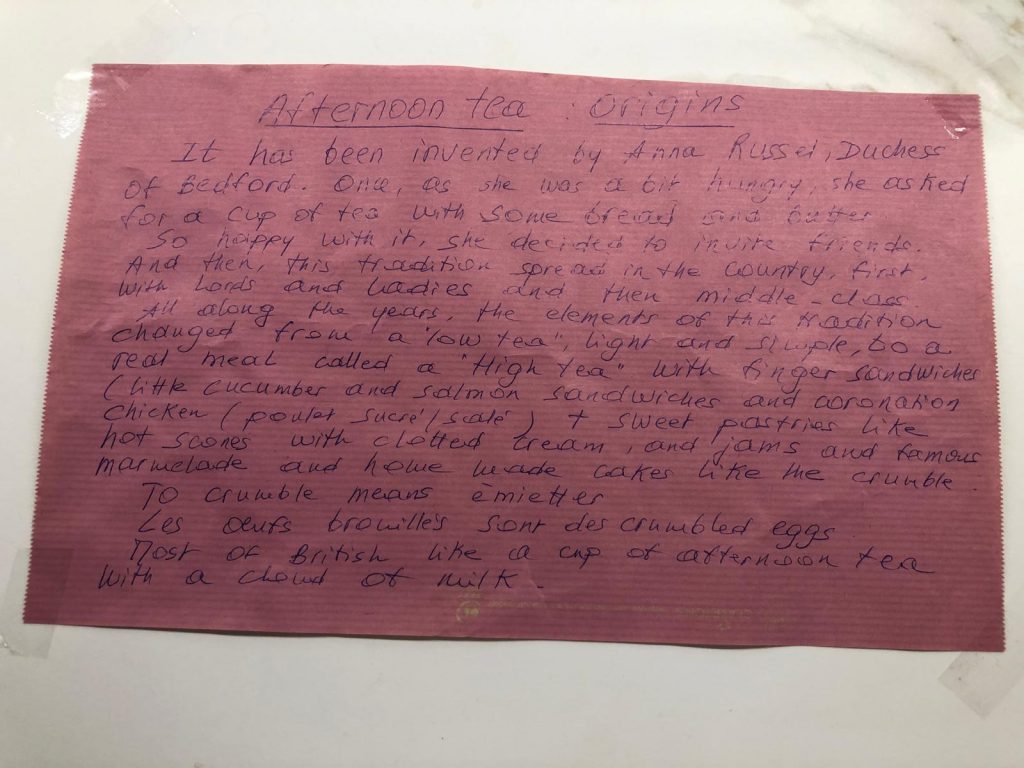 Afternoon tea : origins
It has been invented by Anna Russel, Duchess
of Bedford. Once, as she was a bit hungry, she asked
for a cup of tea with some bread and butter
So happy with it, she decided to invite friends.
And then, this tradition spread in the country, first,
with Lords and Ladies and then middle-class.
All along the years, the elements of this tradition
changed from a "low tea", light and simple, to a
real meal called a "High Tea" with finger sandwiches
(little cucumber and salmon sandwiches and coronation
chicken (poulet sucré/salé) + sweet pastries like
hot scones with clotted cream, and jams and famous
marmelade and home made cakes like the crumble.
To crumble means émietter
Les oeufs brouillés sont des crumbled eggs
Most of British like a cup of afternoon tea
with a cloud of milk.